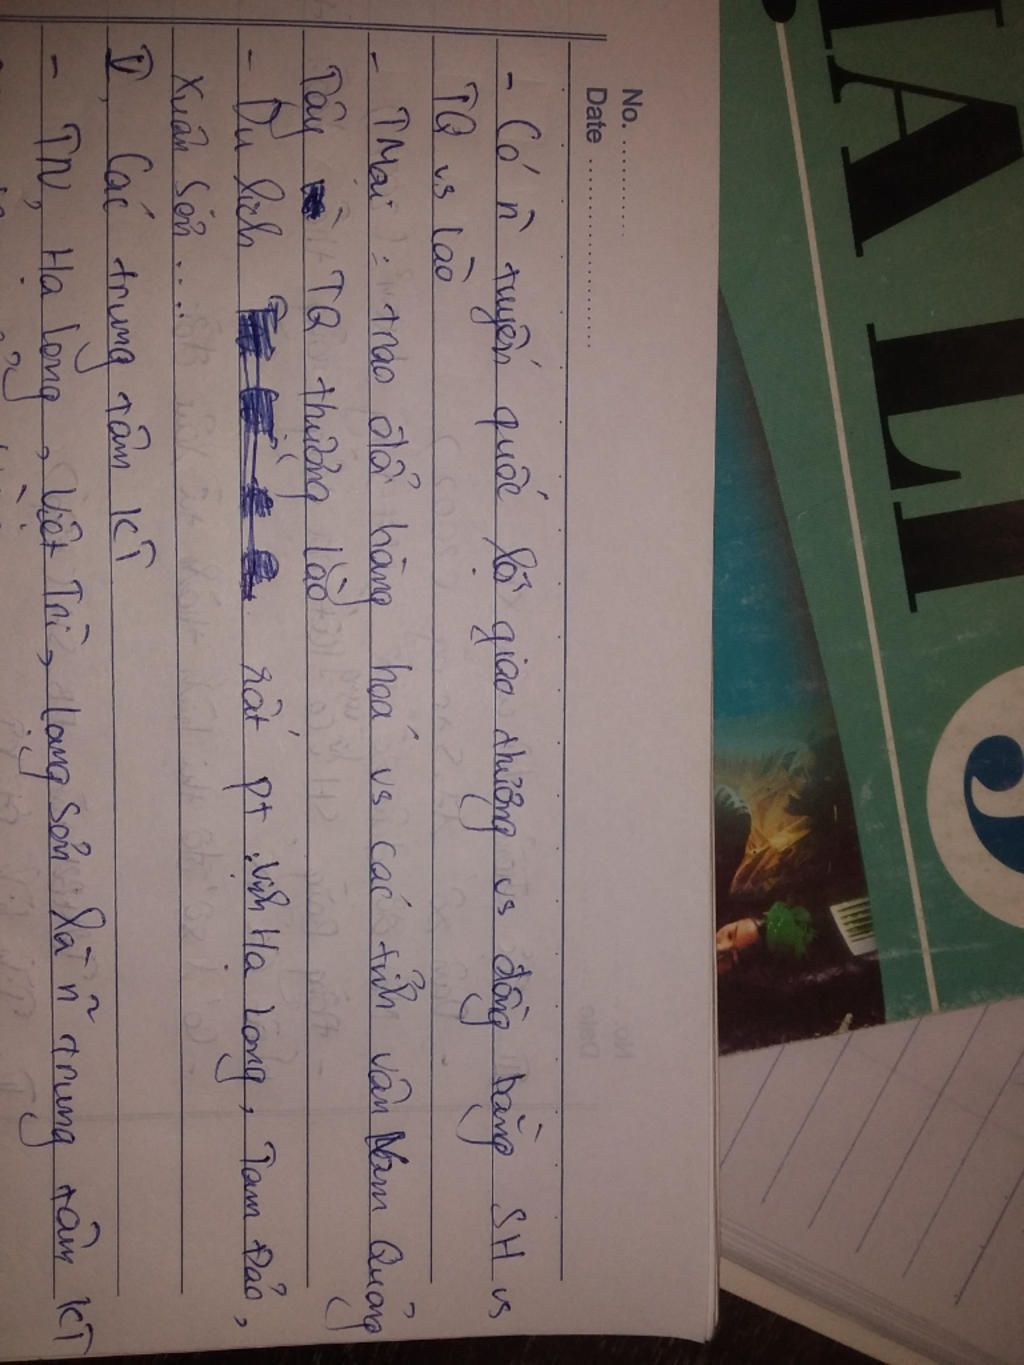 No. ............
Date ......................
- Có ñ tuyến quốc lộ giao thương vs đồng bằng SH vs
TQ vs Lào
- TMại : trao đổi hàng hoá vs các tỉnh Vân Nam Quảng
Tây TQ thường Lào
- Du lịch rất pt Vịnh Hạ Long, Tam Đảo,
Xuân Sơn...
V, Các trung tâm KT
- TN, Hạ Long, Việt Trì, Lạng Sơn là ñ trung tâm KT
ALI